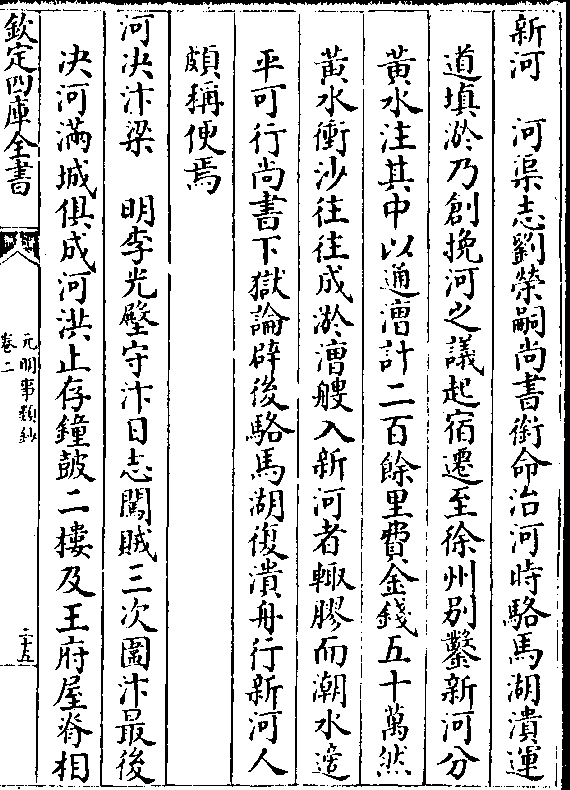 新河　河渠志劉榮嗣尚書銜命治河時駱馬湖潰運
道填淤乃創挽河之議起宿遷至徐州别鑿新河分
黄水注其中以通漕計二百餘里費金錢五十萬然
黄水衝沙往往成淤漕艘入新河者輙膠而潮水適
平可行尚書下獄論辟後駱馬湖復潰舟行新河人
頗稱便焉
河决汴梁　明李光壂守汴日志闖賊三次圖汴最後
决河滿城俱成河洪止存鐘皷二樓及王府屋脊相
欽定四庫全書
元明事類鈔
卷二
二十五